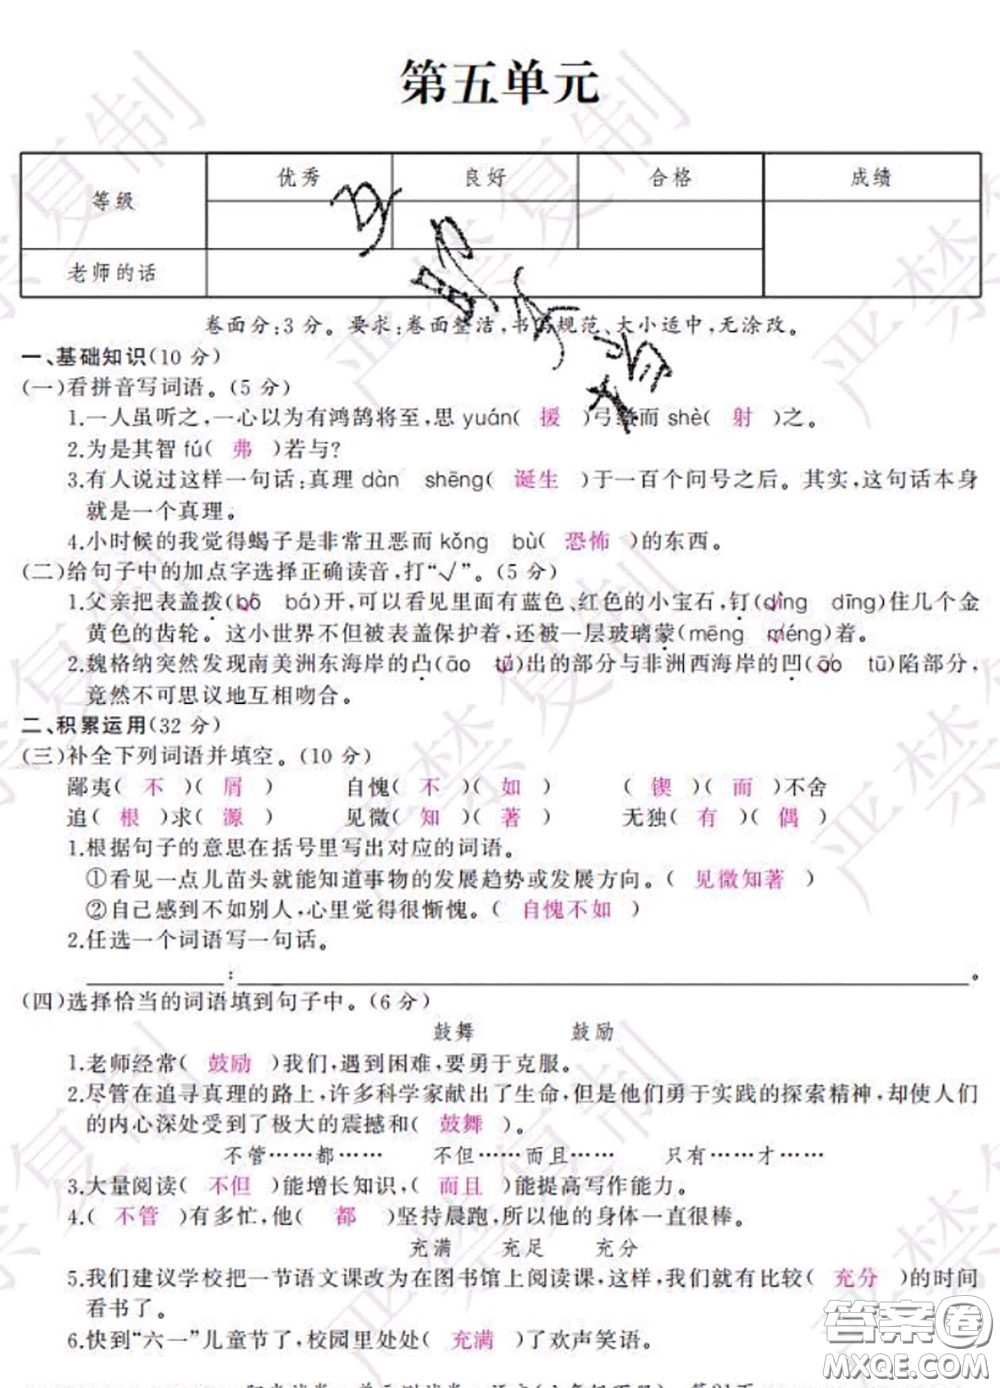 第五单元
等级 优秀 良好 合格 成绩
老师的话
卷面分:3分。要求:卷面整洁,书写规范、大小适中,无涂改。
一、基础知识(10分)
(一)看拼音写词语。(5分)
1.一人虽听之,一心以为有鸿鹄将至,思yuán( 援 )弓缴而shè( 射 )之。
2.为是其智fú( 弗 )若与?
3.有人说过这样一句话:真理dàn shēng( 诞生 )于一百个问号之后。其实,这句话本身
就是一个真理。
4.小时候的我觉得蝎子是非常丑恶而kǒng bù( 恐怖 )的东西。
(二)给句子中的加点字选择正确读音,打“√”。(5分)
1.父亲把表盖拨(bō bá)开,可以看见里面有蓝色、红色的小宝石,钉(dìng dīng)住几个金
黄色的齿轮。这小世界不但被表盖保护着,还被一层玻璃蒙(mēng méng)着。
2.魏格纳突然发现南美洲东海岸的凸(āo tū)出的部分与非洲西海岸的凹(āo tū)陷部分,
竟然不可思议地互相吻合。
二、积累运用(32分)
(三)补全下列词语并填空。(10分)
鄙夷( 不 )( 屑 ) 自愧( 不 )( 如 ) ( 锲 )( 而 )不舍
追( 根 )求( 源 ) 见微( 知 )( 著 ) 无独( 有 )( 偶 )
1.根据句子的意思在括号里写出对应的词语。
①看见一点儿苗头就能知道事物的发展趋势或发展方向。( 见微知著 )
②自己感到不如别人,心里觉得很惭愧。( 自愧不如 )
2.任选一个词语写一句话。
: 。
(四)选择恰当的词语填到句子中。(6分)
鼓舞 鼓励
1.老师经常( 鼓励 )我们,遇到困难,要勇于克服。
2.尽管在追寻真理的路上,许多科学家献出了生命,但是他们勇于实践的探索精神,却使人们
的内心深处受到了极大的震撼和( 鼓舞 )。
不管……都…… 不但……而且…… 只有……才……
3.大量阅读( 不但 )能增长知识,( 而且 )能提高写作能力。
4.( 不管 )有多忙,他( 都 )坚持晨跑,所以他的身体一直很棒。
充满 充足 充分
5.我们建议学校把一节语文课改为在图书馆上阅读课,这样,我们就有比较( 充分 )的时间
看书了。
6.快到“六一”儿童节了,校园里处处( 充满 )了欢声笑语。
答案圈
MXQE.COM
严禁复制